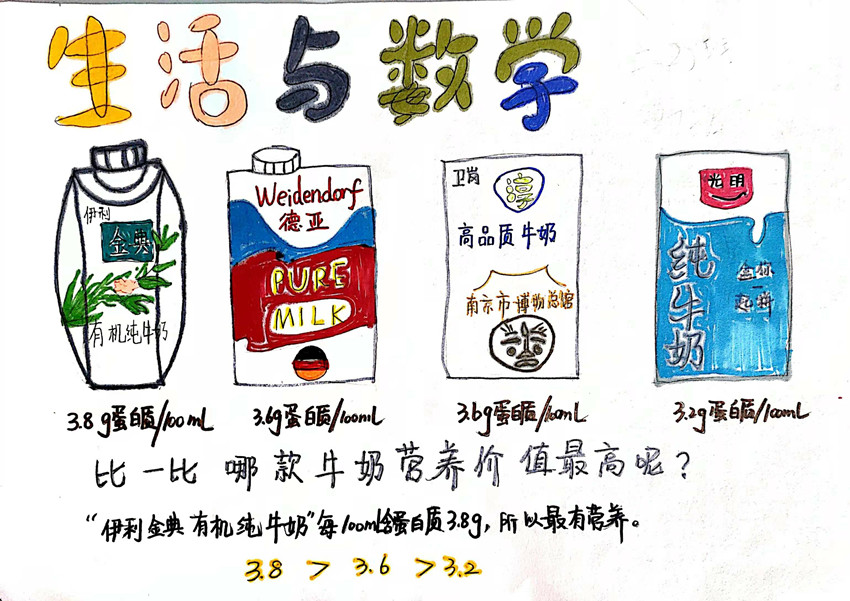 生活与数学
伊利
金典
有机纯牛奶
Weidendorf
德亚
PURE
MILK
卫岗
淳
高品质牛奶
南京市博物总馆
光明
纯牛奶
3.8g蛋白质/100mL
3.6g蛋白质/100mL
3.6g蛋白质/100mL
3.2g蛋白质/100mL
比一比 哪款牛奶营养价值最高呢?
“伊利金典有机纯牛奶”每100ml含蛋白质3.8g,所以最有营养。
3.8 > 3.6 > 3.2